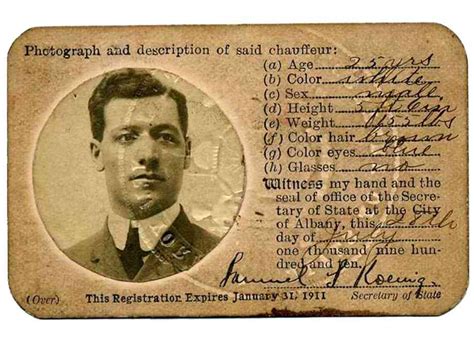 Photograph and description of said chauffeur:
(a) Age 25 yrs
(b) Color white
(c) Sex male
(d) Height 5 ft
(e) Weight 152 lbs
(f) Color hair brown
(g) Color eyes blue
(h) Glasses no
Witness my hand and the
seal of office of the Secre-
tary of State at the City
of Albany, this
day of July
one thousand nine hund-
dred and ten.
Samuel S Koenig
(Over) This Registration Expires January 31, 1911 Secretary of State